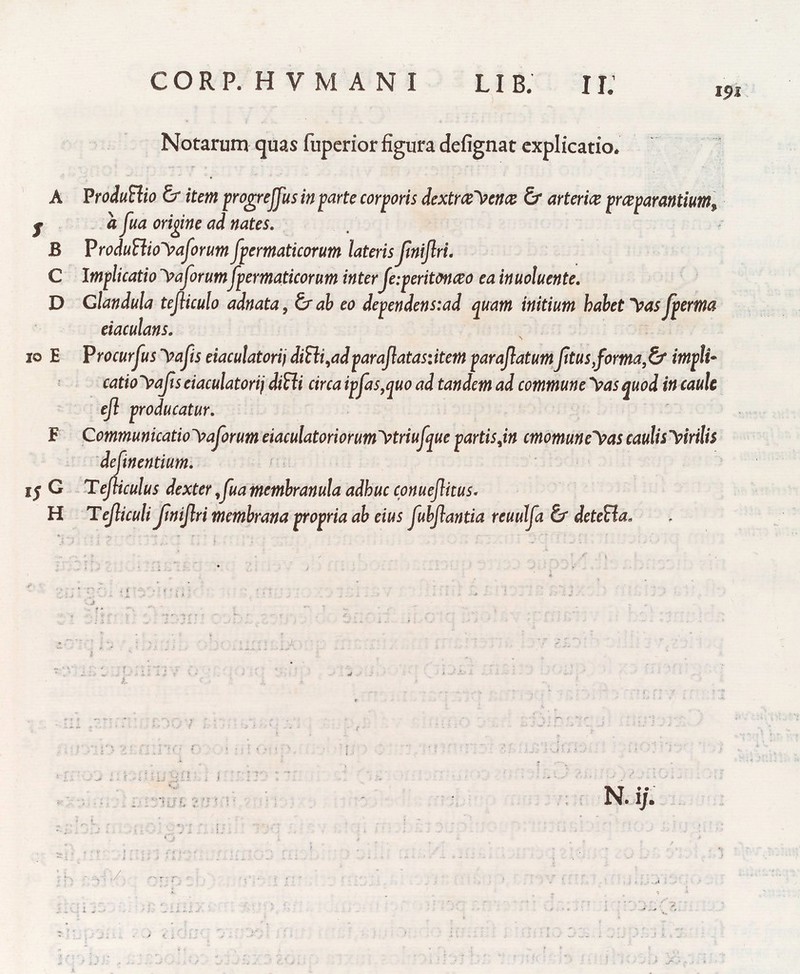 CORP. HVMANI LIB. II. 191
Notarum quas ſuperior figura deſignat explicatio.
A Productio & item progreſſus in parte corporis dextræ venæ & arteriæ præparantium,
5 à ſua origine ad nates.
B Productio vaſorum ſpermaticorum lateris ſiniſtri.
C Implicatio vaſorum ſpermaticorum inter ſe: peritonæo ea inuoluente.
D Glandula teſticulo adnata, & ab eo dependens: ad quam initium habet vas ſperma
eiaculans.
10 E Procurſus vaſis eiaculatorij dicti, ad paraſtatas: item paraſtatum ſitus, forma, & impli-
catio vaſis eiaculatorij dicti circa ipſas, quo ad tandem ad commune vas quod in caule
eſt producatur.
F Communicatio vaſorum eiaculatoriorum vtriuſque partis, in cmomune vas caulis virilis
deſinentium.
15 G Teſticulus dexter, ſua membranula adhuc conueſtitus.
H Teſticuli ſiniſtri membrana propria ab eius ſubſtantia reuulſa & detecta.
N. ij.